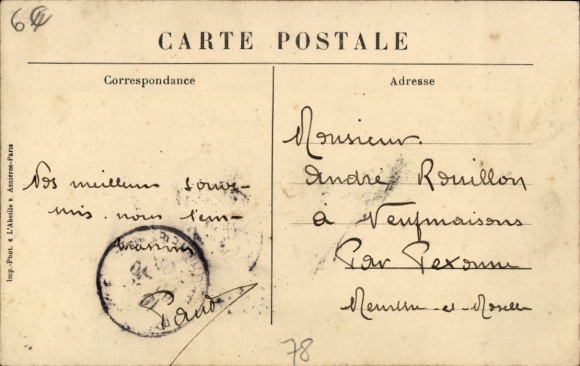 64
CARTE POSTALE
Correspondance
Adresse
Nos meilleurs souve-
nirs. nous t'em-
brassons
Monsieur
André Rouillon
à Neufmaisons
Par Pexonne
Meurthe-et-Moselle
78
Imp.-Phot. « L'Abeille » Asnières-Paris